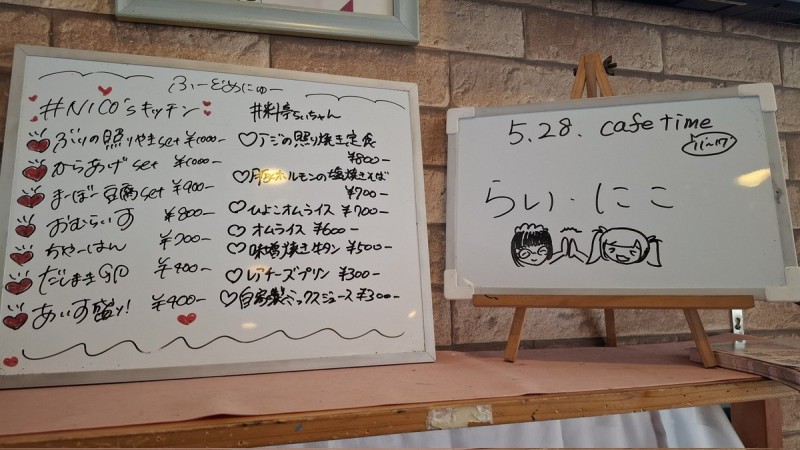 ふーどめにゅー
#NICO'sキッチン
ぶりの照りやきset ¥1000-
からあげset ¥1000-
まーぼー豆腐set ¥900-
おむらいす ¥800-
ちゃーはん ¥700-
だしまき ¥400-
あいす盛り! ¥400-
#料亭らいちゃん
アジの照り焼き定食
¥800-
豚ホルモンの塩焼きそば
¥700-
ひよこオムライス ¥700-
オムライス ¥600-
味噌焼き牛タン ¥500-
レアチーズプリン ¥300-
自家製ミックスジュース ¥300-
5.28. cafe time
11~17
らい・にこ